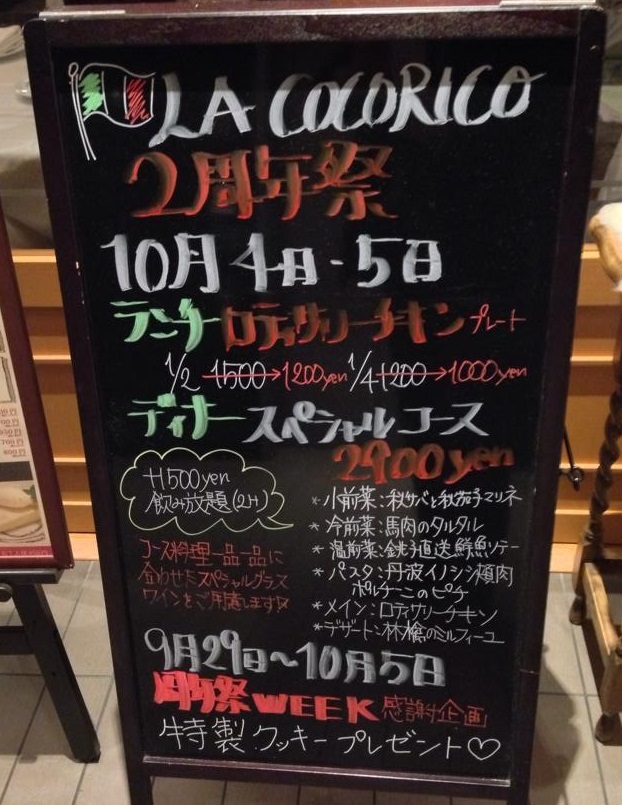 LA COCORICO
2周年祭
10月4日-5日
ランチ ロティサリーチキン プレート
1/2 1500→1200yen 1/4 1200→1000yen
ディナー スペシャルコース
2900yen
+1500yen
飲み放題(2H)
コース料理一品一品に
合わせたスペシャルグラス
ワインをご用意します
*小前菜:秋サバと秋茄子マリネ
*冷前菜:馬肉のタルタル
*温前菜:銚子直送鮮魚ソテー
*パスタ:丹波イノシシ頬肉
ポルチーニのピチ
*メイン:ロティサリーチキン
*デザート:林檎のミルフィーユ
9月29日〜10月5日
周年祭WEEK 感謝企画
特製クッキープレゼント♡